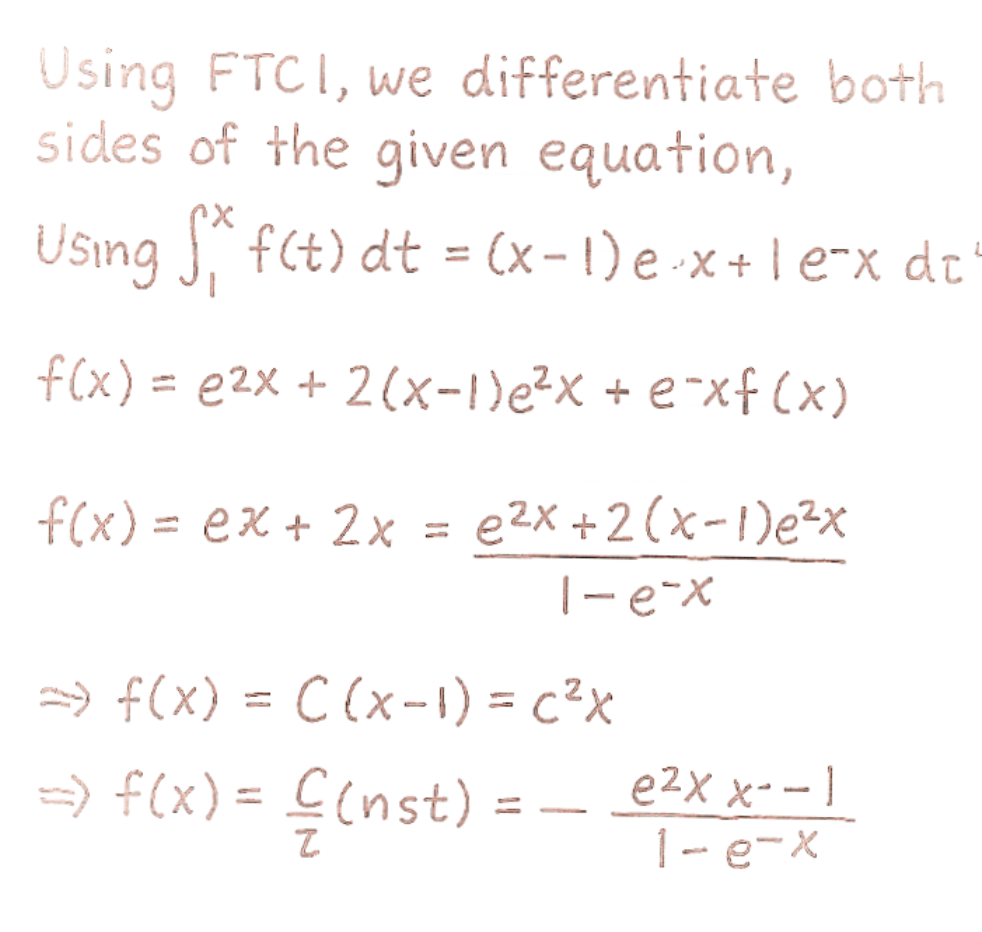 Using FTC1, we differentiate both
sides of the given equation,
Using ∫₁ˣ f(t) dt = (x-1) e x + 1 e-x
f(x) = e2x + 2(x-1)e²x + e-xf(x)
f(x) = ex + 2x = e2x + 2(x-1)e²x / 1-e-x
⇒ f(x) = C(x-1) = c²x
⇒ f(x) = C/τ (nst) = - e2x x--1 / 1-e-x